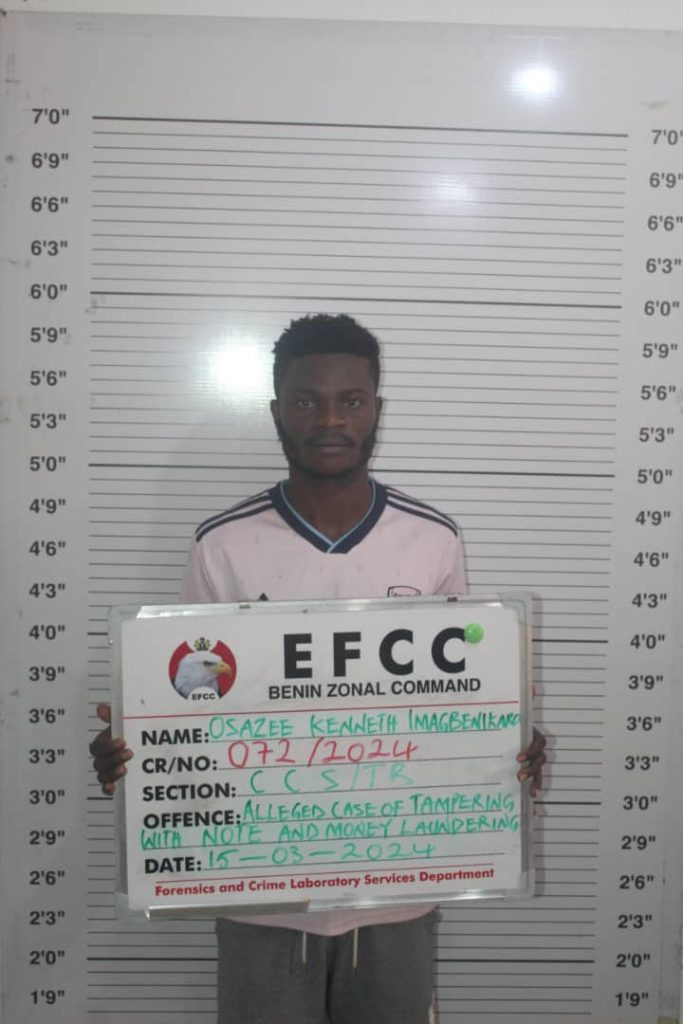 7'0" 7'0"
6'9" 6'9"
6'6" 6'6"
6'3" 6'3"
6'0" 6'0"
5'9" 5'9"
5'6" 5'6"
5'3" 5'3"
5'0" 5'0"
4'9" 4'9"
4'6" 4'6"
4'3" 4'3"
4'0" 4'0"
3'9" 3'9"
3'6" 3'6"
3'3" 3'3"
3'0" 3'0"
2'9" 2'9"
2'6" 2'6"
2'3" 2'3"
2'0" 2'0"
1'9" 1'9"
EFCC
EFCC
BENIN ZONAL COMMAND
NAME: OSAZEE KENNETH IMAGBENIKARO
CR/NO: 072/2024
SECTION: CCS/TR
OFFENCE: ALLEGED CASE OF TAMPERING
WITH NOTE AND MONEY LAUNDERING
DATE: 15-03-2024
Forensics and Crime Laboratory Services Department